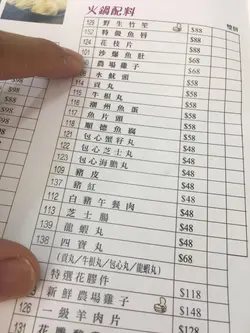 火鍋配料
雙併
129 野生竹笙 $88
132 特級魚唇 $88
124 花枝片 $58
101 沙爆魚肚 $68
農場雞子 $68
水魷頭 $58
114 貢丸 $48
115 牛根丸 $48
116 潮州魚蛋 $48
117 魚片頭 $48
118 順德魚腐 $48
121 包心蟹籽丸 $48
122 包心芝士丸 $48
123 包心海膽丸 $48
109 豬皮 $48
137 豬紅 $48
112 白豬午餐肉 $48
113 芝士腸 $48
139 龍蝦丸 $48
138 四寶丸 $68
(貢丸／牛根丸／包心丸／龍蝦丸)
特選花膠件 $118
新鮮農場雞子 $148
126 一級羊肉片 $
131